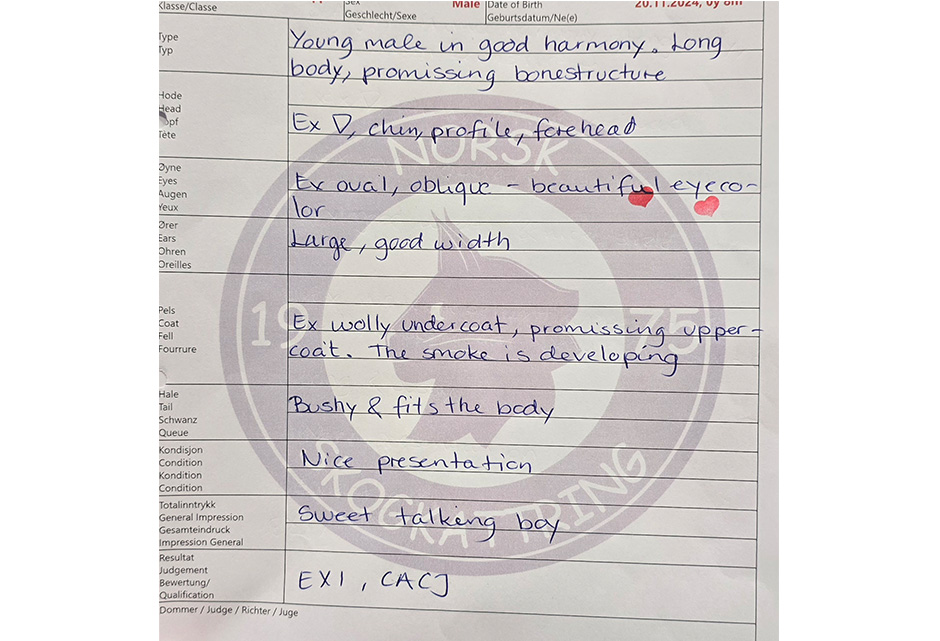 Klasse/Classe
Sex
Male
Date of Birth
20.11.2024, 0y 8m
Geschlecht/Sexe
Geburtsdatum/Ne(e)
Type
Typ
Young male in good harmony. Long
body, promissing bonestructure
Hode
Head
Kopf
Tete
Ex ▽, chin, profile, forehead
Øyne
Eyes
Augen
Yeux
Ex oval, oblique - beautiful eyeco-
lor
Ører
Ears
Ohren
Oreilles
Large, good width
Pels
Coat
Fell
Fourrure
Ex wolly undercoat, promissing upper-
coat. The smoke is developing
Hale
Tail
Schwanz
Queue
Bushy & fits the body
Kondisjon
Condition
Kondition
Condition
Nice presentation
Totalinntrykk
General Impression
Gesamteindruck
Impression General
Sweet talking boy
Resultat
Judgement
Bewertung/
Qualification
EX1, CACJ
Dommer / Judge / Richter / Juge
NORSK
1975
SKOGKATTRING